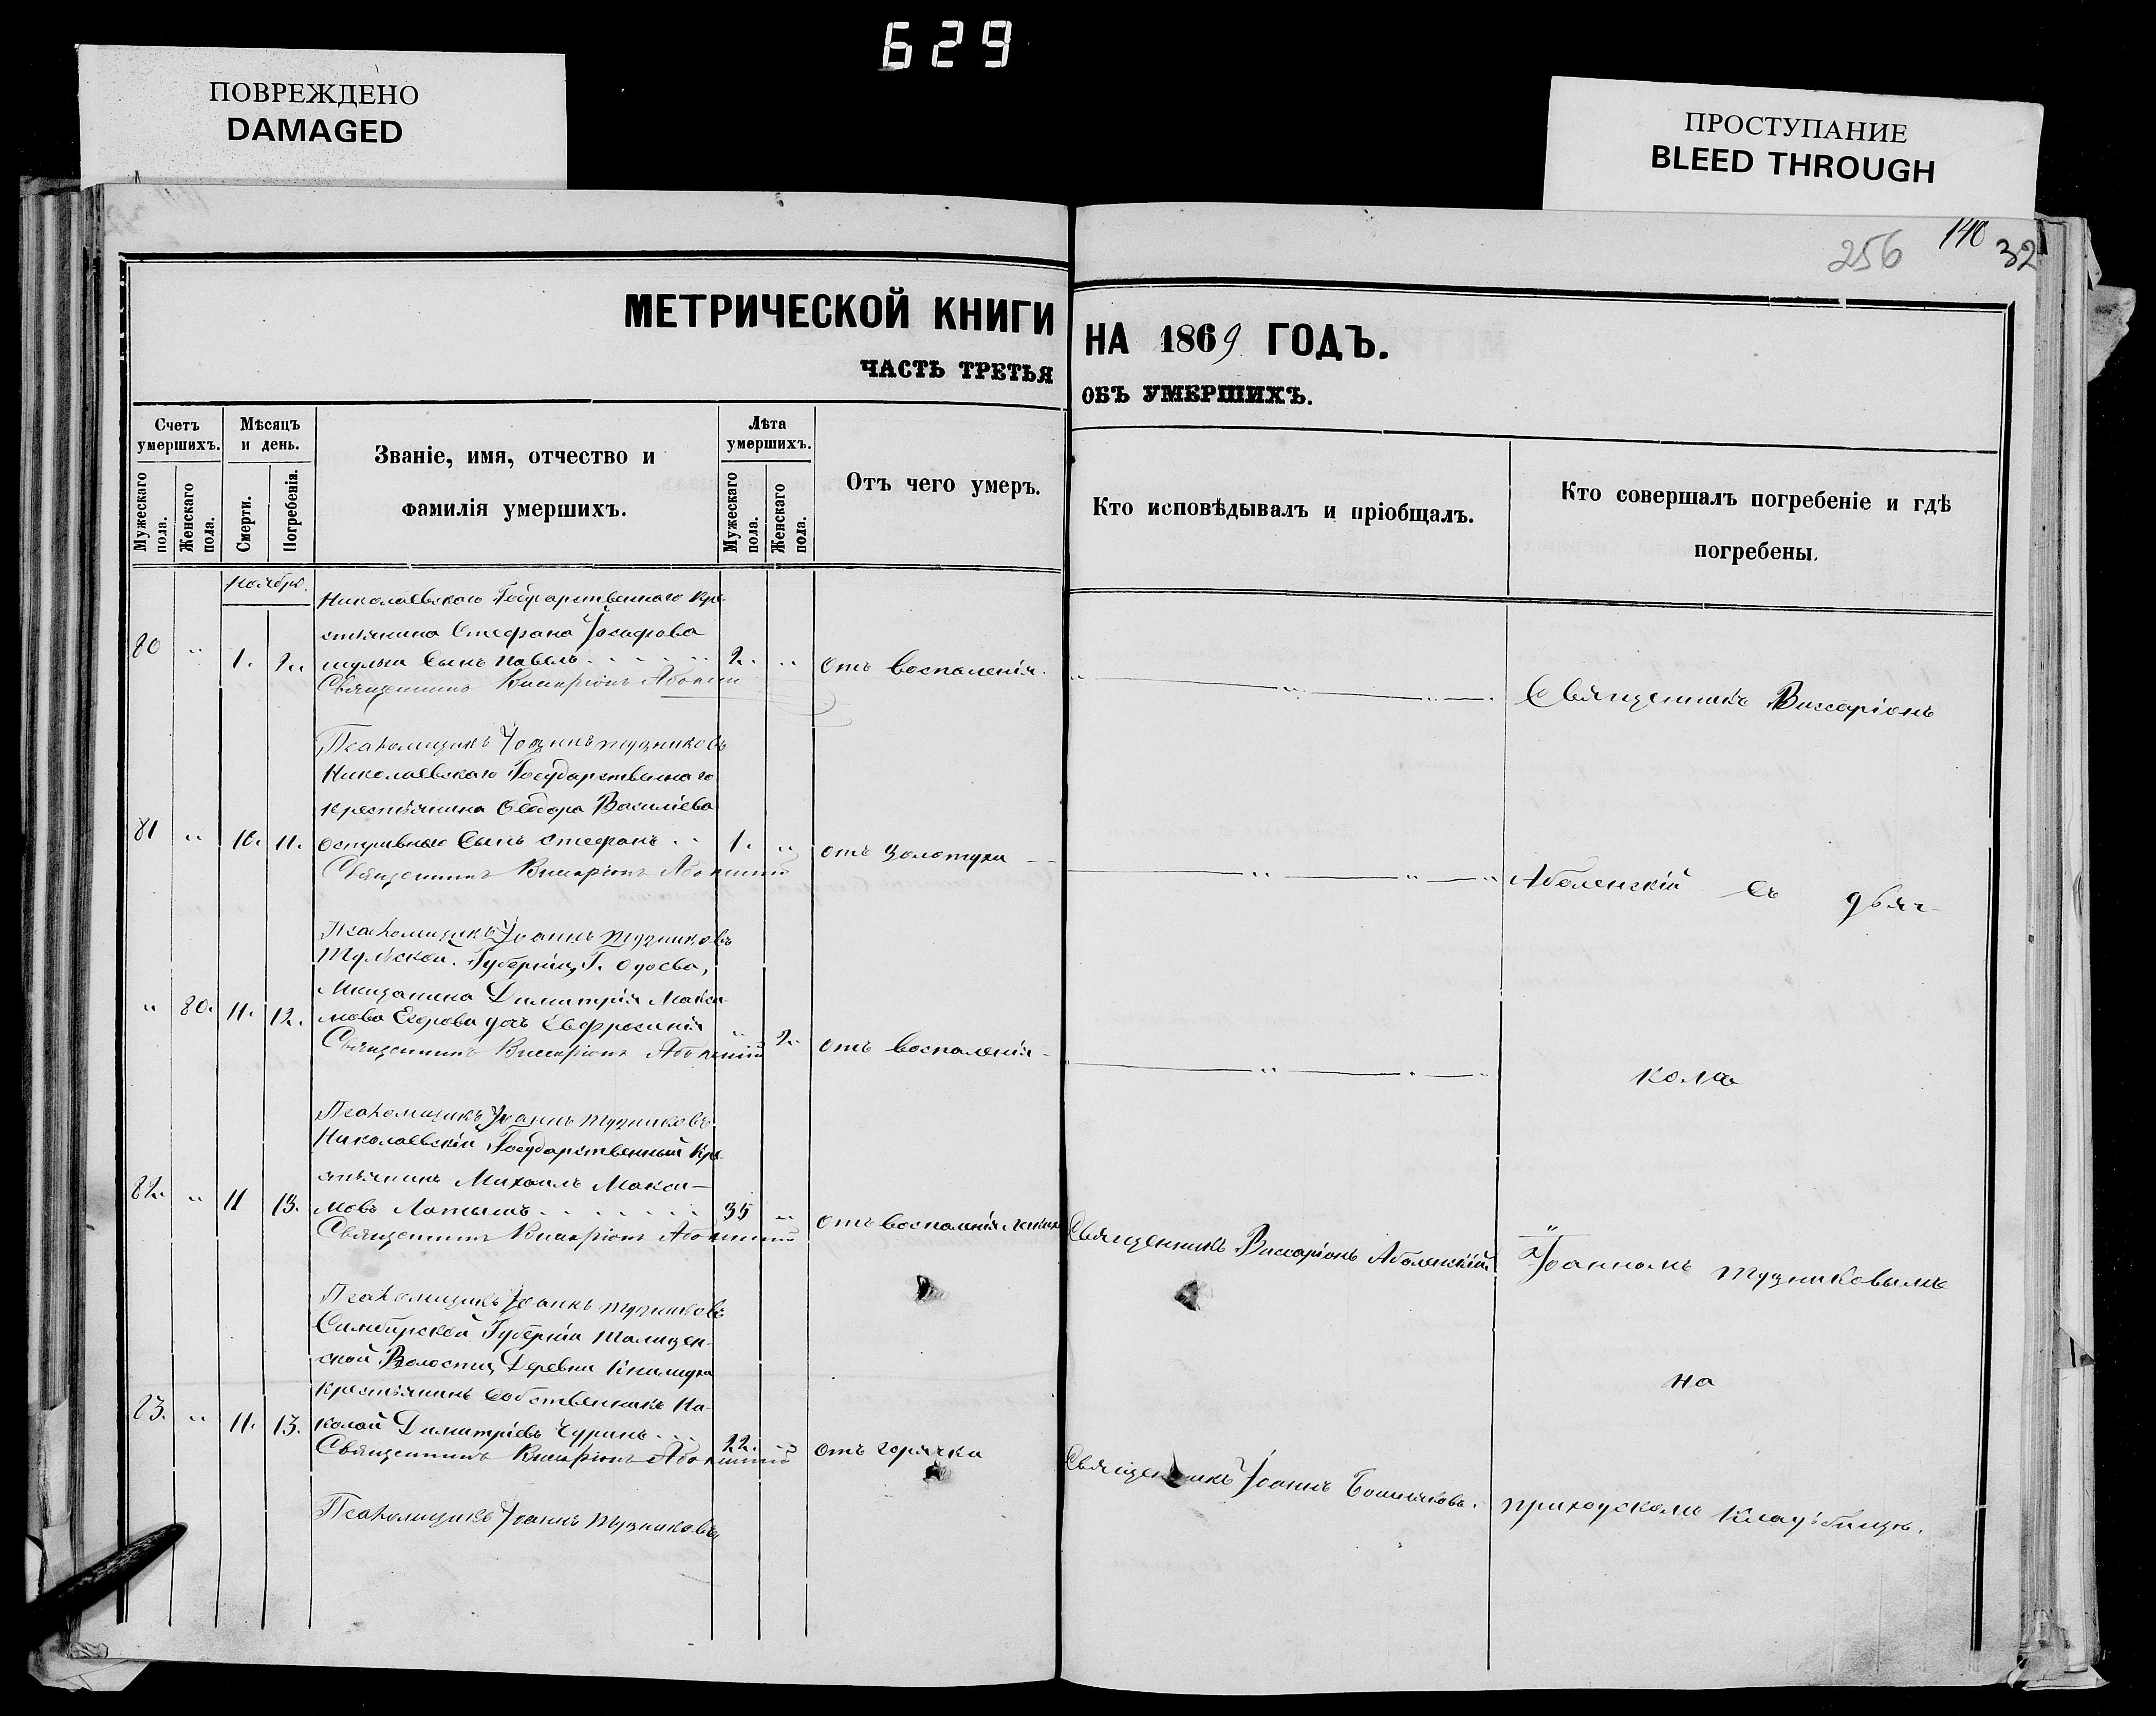 629
ПОВРЕЖДЕНО
DAMAGED
ПРОСТУПАНИЕ
BLEED THROUGH
256 140 32
МЕТРИЧЕСКОЙ КНИГИ НА 1869 ГОДЪ.
ЧАСТЬ ТРЕТЬЯ ОБЪ УМЕРШИХЪ.
Счетъ умершихъ.
Мужескаго пола.
Женскаго пола.
Мѣсяцъ и день.
Смерти.
Погребенія.
Званіе, имя, отчество и
фамилія умершихъ.
Лѣта умершихъ.
Мужескаго пола.
Женскаго пола.
Отъ чего умеръ.
Кто исповѣдывалъ и пріобщалъ.
Кто совершалъ погребеніе и гдѣ
погребены.
Ноября.
Николаевскаго Государственнаго Кре-
стьянина Стефана Іосифова
80 " 1. 2. Сынъ Павелъ 2. " Отъ воспаленія.
Священникъ Виссаріонъ
Священникъ Виссаріонъ
Псаломщикъ Іоаннъ Тузниковъ
Николаевскаго Государственнаго
Крестьянина Ѳеодора Василіева
81 " 10. 11. Сынъ Стефанъ 1. " Отъ Золотухи
Священникъ Виссаріонъ
Аболенскій Съ
Псаломщикъ Іоаннъ Тузниковъ
Тульской Губерніи, Г. Одоева,
Мѣщанина Димитрія Макси-
" 80. 11. 12. мова Егорова дочь Евфросинія " 2. Отъ воспаленія
Священникъ Виссаріонъ
Псаломщикъ Іоаннъ Тузниковъ
Николаевскій Государственный Кре-
стьянинъ Михаилъ Макси-
82. " 11 13. мовъ Латышъ 35 " Отъ воспаленія легкихъ Священникъ Виссаріонъ Аболенскій
Священникъ Виссаріонъ
Іоанномъ Тузниковымъ
Псаломщикъ Іоаннъ Тузниковъ
Симбирской Губерніи
Волости, Деревни
на
Крестьянинъ Собственникъ Ни-
83. " 11. 13. колай Димитріевъ Чуринъ 22. " Отъ горячки Священникъ Іоаннъ
Священникъ Виссаріонъ
приходскомъ Кладбищѣ.
Псаломщикъ Іоаннъ Тузниковъ